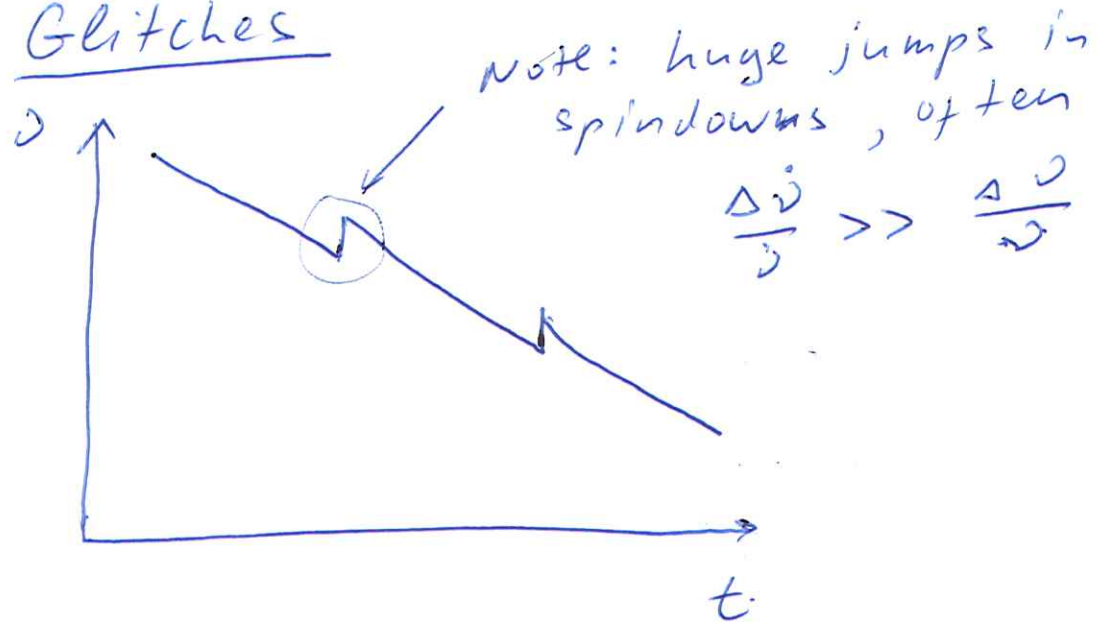 Glitches
Note: huge jumps in
spindowns, often
Δν̇/ν̇ >> Δν/ν
ν
t